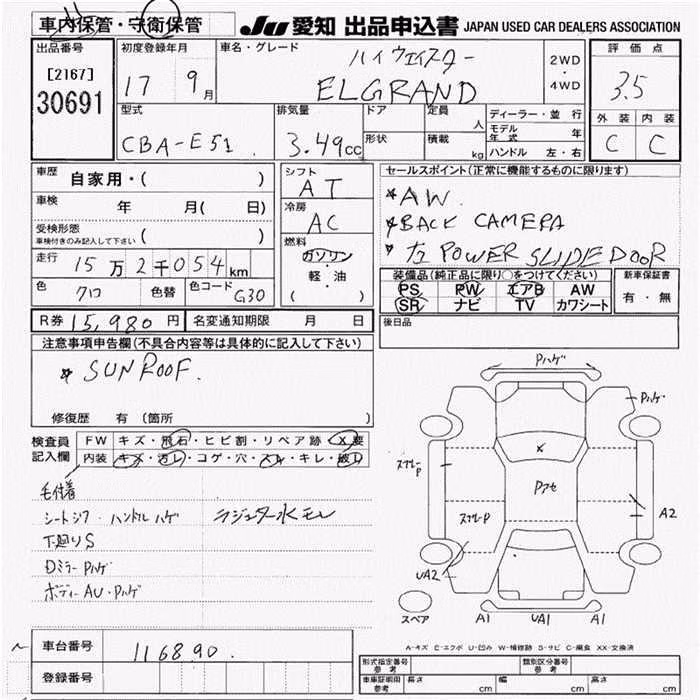 車内保管・守衛保管 JU 愛知 出品申込書 JAPAN USED CAR DEALERS ASSOCIATION
出品番号 初度登録年月 車名・グレード ハイウェイスター 2WD・4WD 評価点
[2167] 30691 17 9月 ELGRAND 3.5
型式 排気量 ドア 定員 人 ディーラー・並 行 外装 内装
CBA-E51 3.49cc 形状 積載 kg モデル年式 年 C C
ハンドル 左・右
車歴 自家用・( ) シフト AT セールスポイント(正常に機能するものに限ります)
車検 年 月( 日) 冷房 AC *AW
受検形態 車検付きのみ記入して下さい ( ) 燃料 ガソリン *BACK CAMERA
走行 15万2千054km 軽・油 *左POWER SLIDE DOOR
色 クロ 色替 色コード G30 ( ) 装備品(純正品に限り○をつけてください) 新車保証書
PS PW エアB AW 有・無
SR ナビ TV カワシート
R券 15,980円 名変通知期限 月 日 後日品
注意事項申告欄(不具合内容等は具体的に記入して下さい)
*SUNROOF.
修復歴 有(箇所 )
検査員記入欄 FW キズ・飛石・ヒビ割・リペア跡・X要
内装 キズ・汚レ・コゲ・穴・スレ・キレ・破レ
毛付着
シートシワ・ハンドルハゲ ラジエター水モレ
下廻りS
Dミラー Pハゲ
ボディーAU・Pハゲ
Pハゲ
Pハゲ
X
スリ傷P
Pアセ
A2
UA2
スペア A1 UA1 A1
A-キズ E-エクボ U-凹み W-補修跡 S-サビ C-腐食 XX-交換済
車台番号 116890.
登録番号
型式指定番号 参考 類別区分番号 参考
車庫証明用 参考 長さ cm 幅 cm 高さ cm